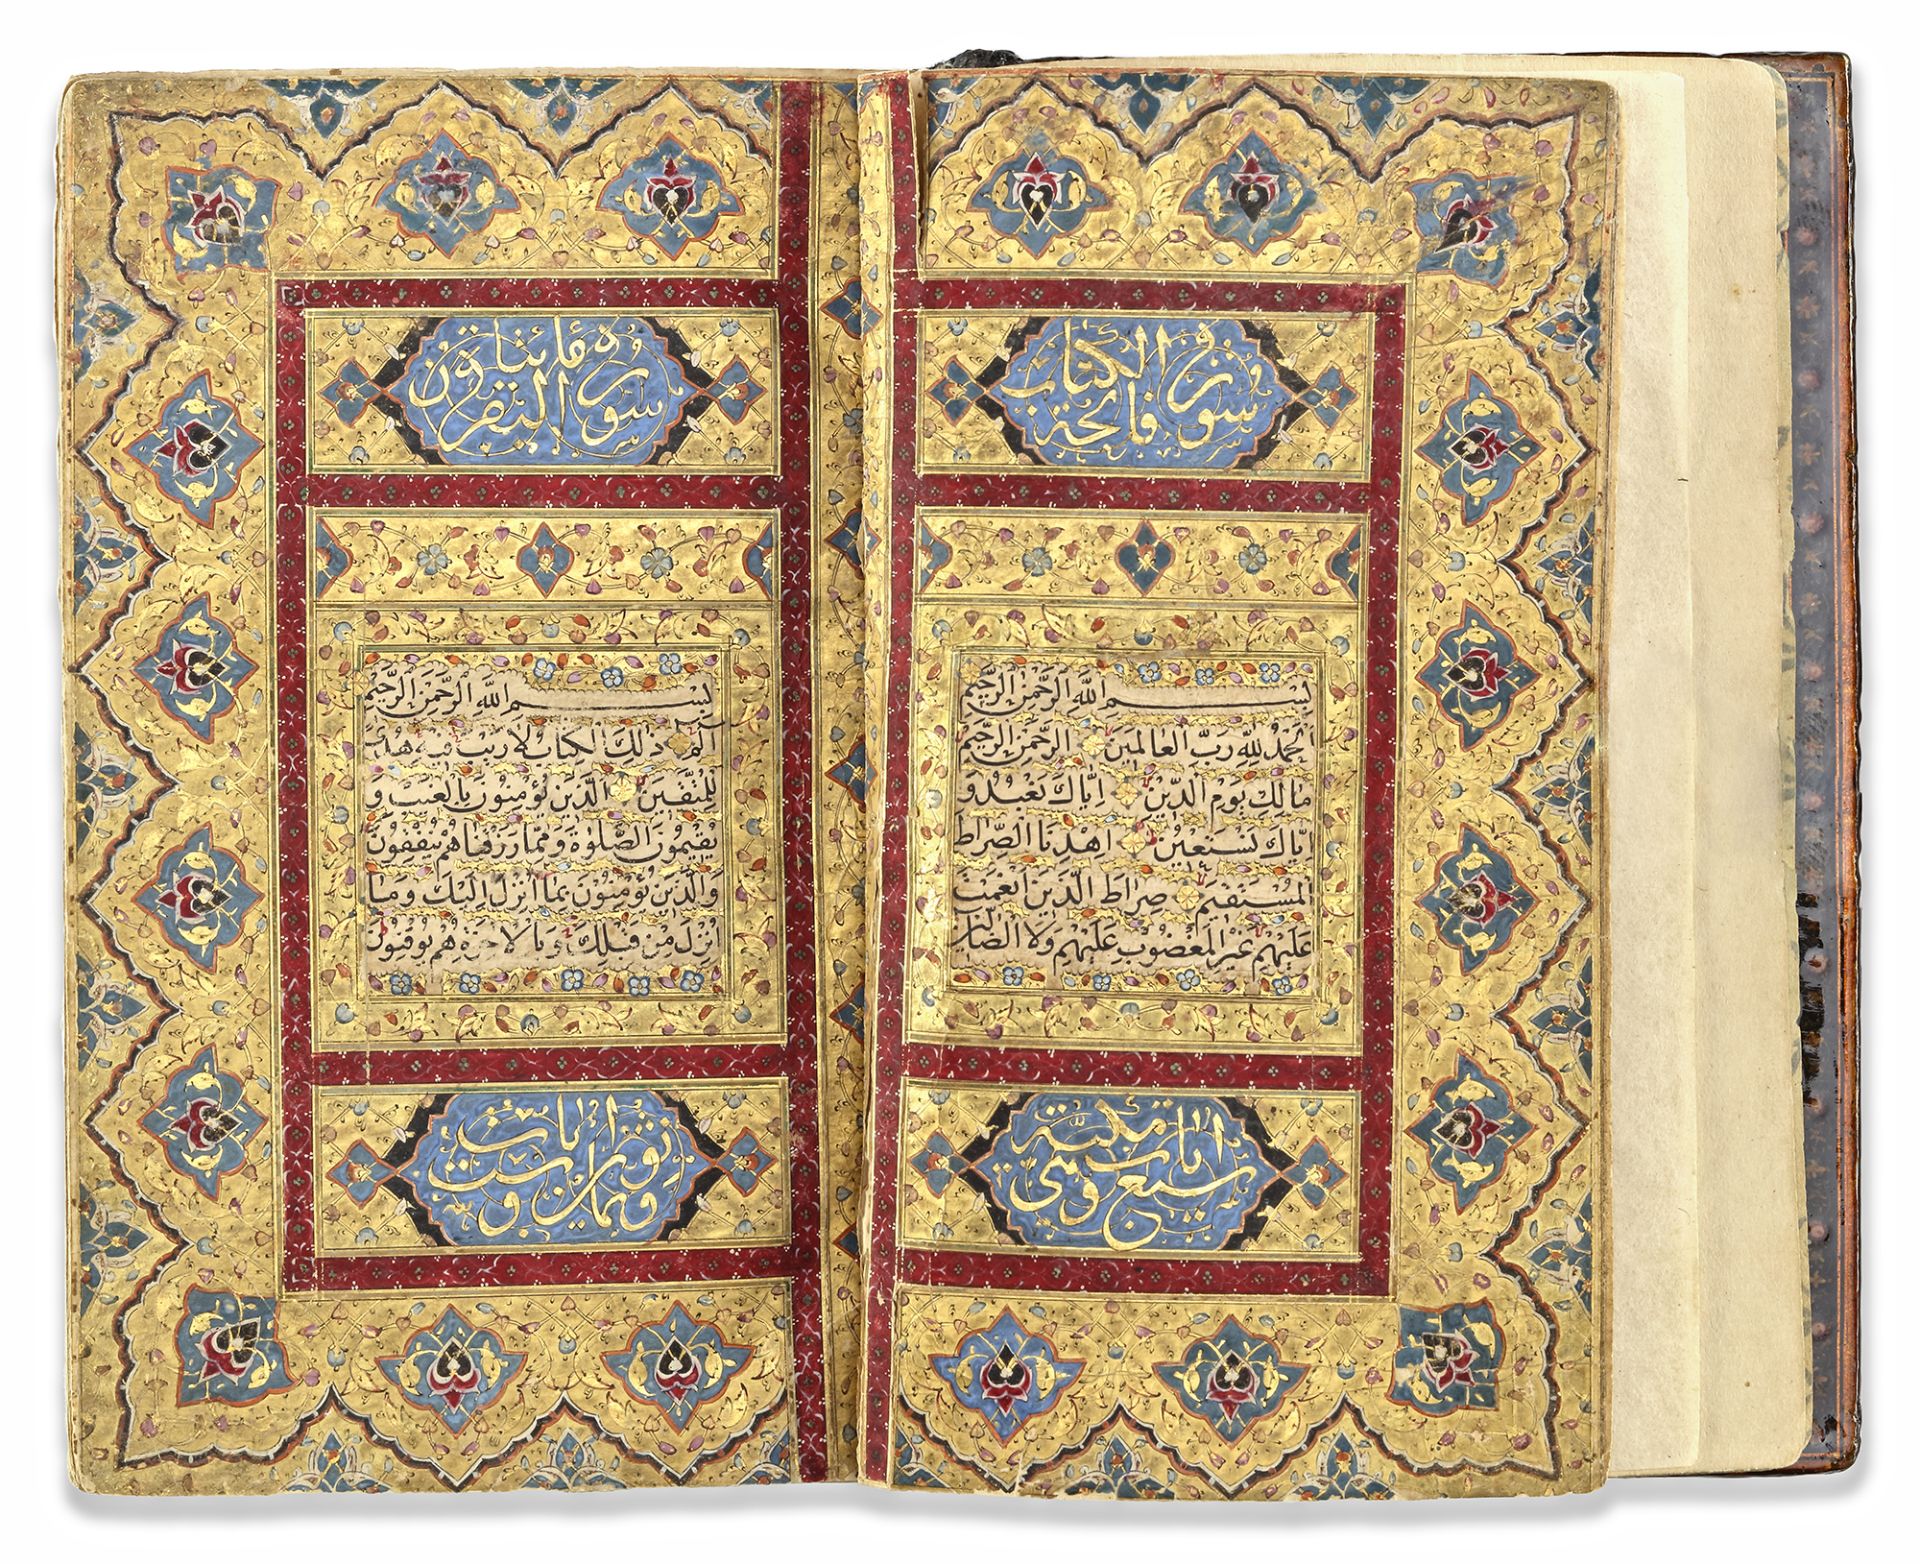 سورة فاتحة الكتاب
بسم الله الرحمن الرحيم
الحمد لله رب العالمين الرحمن الرحيم
مالك يوم الدين اياك نعبد و
اياك نستعين اهدنا الصراط
المستقيم صراط الذين انعمت
عليهم غير المغضوب عليهم ولا الضالين
سبع ايات مكية
سورة البقرة مائتان
بسم الله الرحمن الرحيم
الم ذلك الكتاب لا ريب فيه هدى
للمتقين الذين يؤمنون بالغيب و
يقيمون الصلوة ومما رزقناهم ينفقون
والذين يؤمنون بما انزل اليك وما
انزل من قبلك وبالاخرة هم يوقنون
وثمانون وست ايات